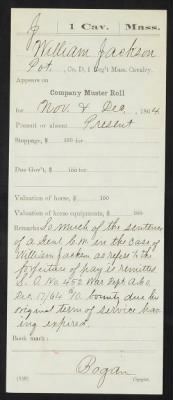 J | 1 Cav. | Mass.
William Jackson
Pvt., Co. D, 1 Reg't Mass. Cavalry.
Appears on
Company Muster Roll
for Nov. & Dec., 1864
Present or absent Present
Stoppage, $ 100 for
Due Gov't, $ 100 for
Valuation of horse, $ 100
Valuation of horse equipments, $ 100
Remarks: So much of the sentence
of a Genl. C. M. in the case of
William Jackson as refers to the
forfeiture of pay is remitted
S. O. No. 450 War Dept A.G.O.
Dec 17/64 bounty due by
original term of service hav-
ing expired.
Book mark:
Copyist.